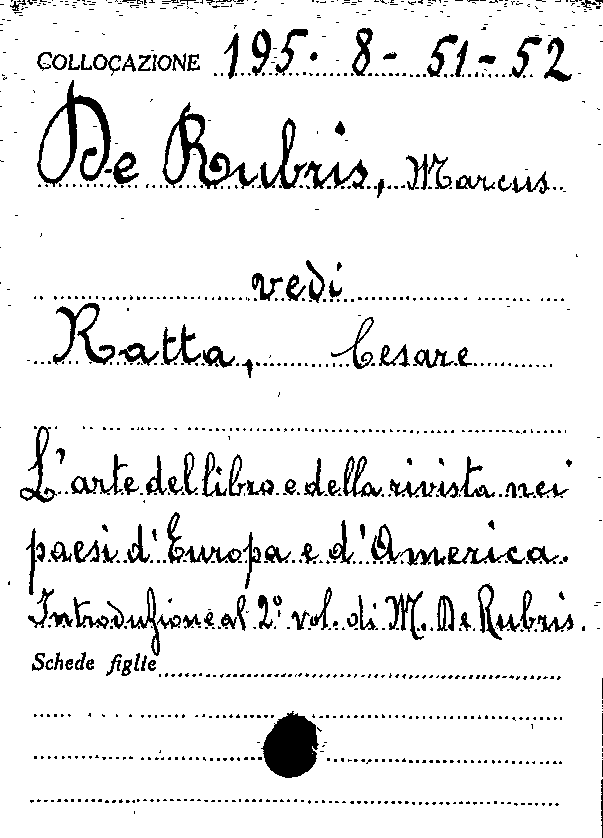 COLLOCAZIONE 195. 8- 51-52
De Rubris, Marcus
vedi
Ratta, Cesare
L'arte del libro e della rivista nei
paesi d'Europa e d'America.
Introduzione al 2° vol. di M. De Rubris.
Schede figlie